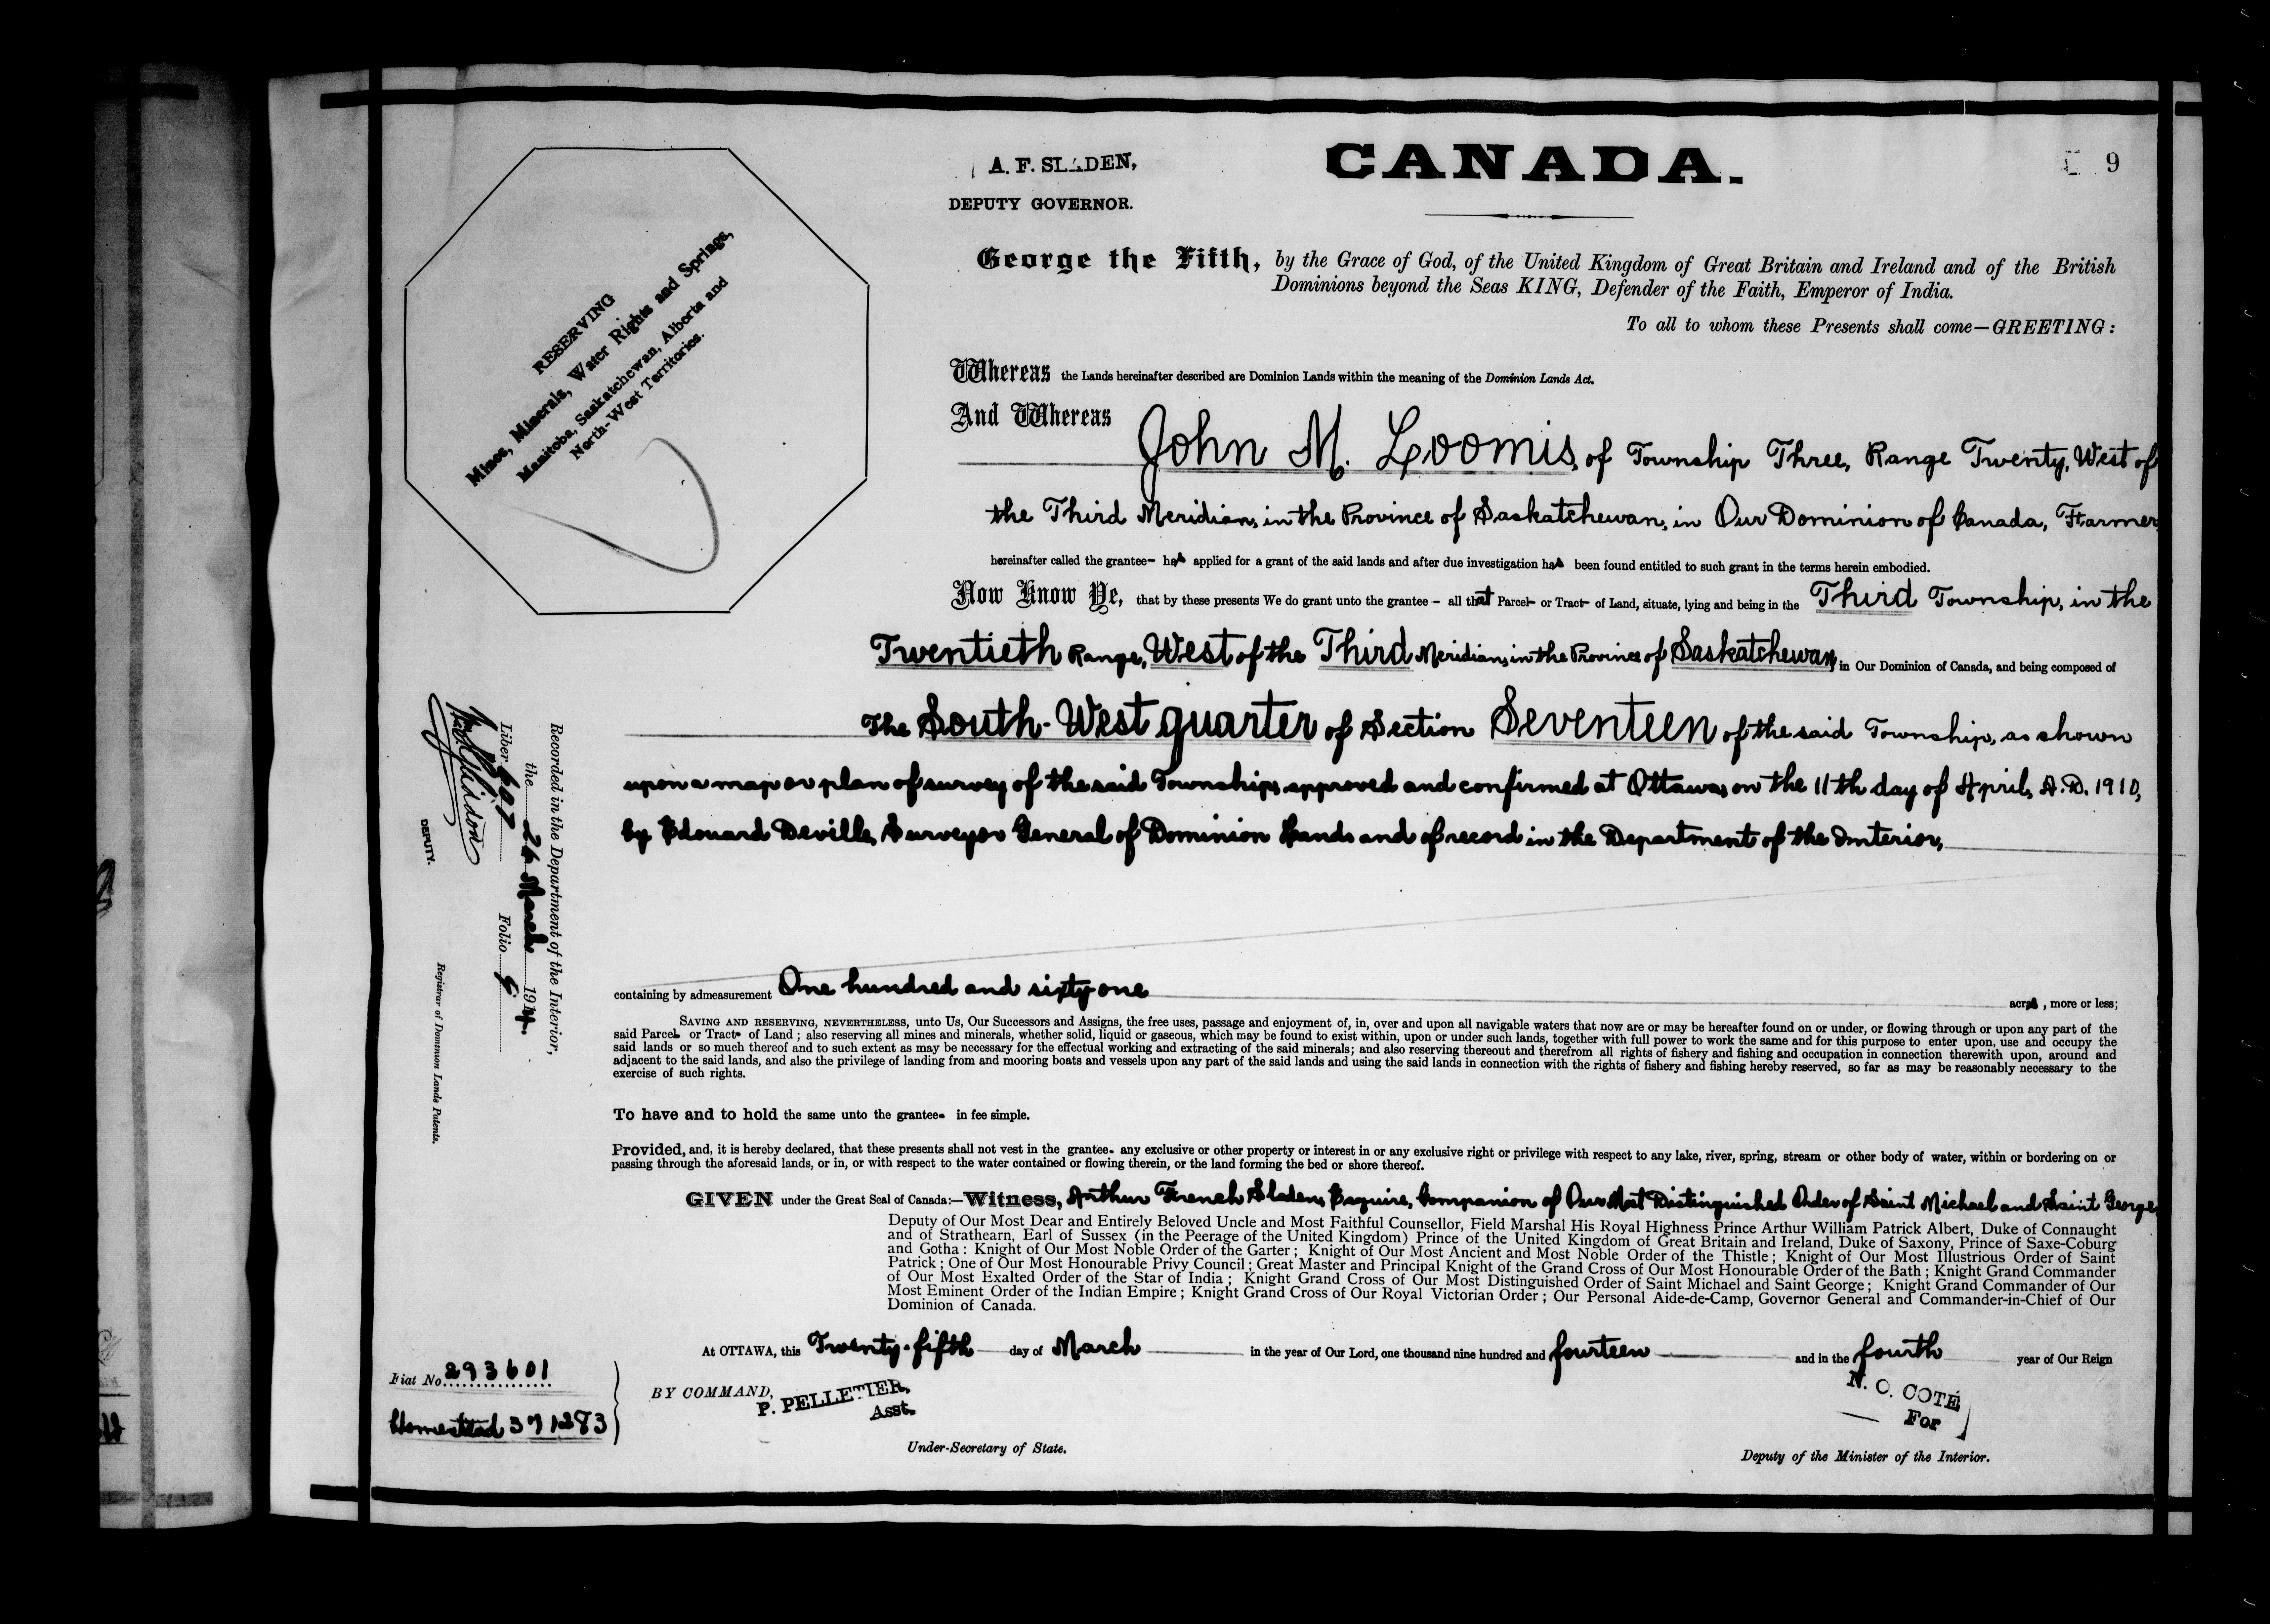 A. F. SLADEN,
DEPUTY GOVERNOR.
CANADA.
9
RESERVING
Mines, Minerals, Water Rights and Springs,
Manitoba, Saskatchewan, Alberta and
North-West Territories.
George the Fifth, by the Grace of God, of the United Kingdom of Great Britain and Ireland and of the British
Dominions beyond the Seas KING, Defender of the Faith, Emperor of India.
To all to whom these Presents shall come—GREETING:
Whereas the Lands hereinafter described are Dominion Lands within the meaning of the Dominion Lands Act.
And Whereas John M. Loomis, of Township Three, Range Twenty, West of
the Third Meridian, in the Province of Saskatchewan, in Our Dominion of Canada, Farmer,
hereinafter called the grantee- has applied for a grant of the said lands and after due investigation has been found entitled to such grant in the terms herein embodied.
Now Know Ye, that by these presents We do grant unto the grantee - all that Parcel- or Tract- of Land, situate, lying and being in the Third Township, in the
Twentieth Range, West of the Third Meridian, in the Province of Saskatchewan, in Our Dominion of Canada, and being composed of
The South-West quarter of Section Seventeen of the said Township, as shown
upon a map or plan of survey of the said Township, approved and confirmed at Ottawa, on the 11th day of April, A.D. 1910,
by Edouard Deville, Surveyor General of Dominion Lands and of record in the Department of the Interior,
containing by admeasurement One hundred and sixty one acres, more or less;
SAVING AND RESERVING, NEVERTHELESS, unto Us, Our Successors and Assigns, the free uses, passage and enjoyment of, in, over and upon all navigable waters that now are or may be hereafter found on or under, or flowing through or upon any part of the
said Parcel- or Tract- of Land; also reserving all mines and minerals, whether solid, liquid or gaseous, which may be found to exist within, upon or under such lands, together with full power to work the same and for this purpose to enter upon, use and occupy the
said lands or so much thereof and to such extent as may be necessary for the effectual working and extracting of the said minerals; and also reserving thereout and therefrom all rights of fishery and fishing and occupation in connection therewith upon, around and
adjacent to the said lands, and also the privilege of landing from and mooring boats and vessels upon any part of the said lands and using the said lands in connection with the rights of fishery and fishing hereby reserved, so far as may be reasonably necessary to the
exercise of such rights.
To have and to hold the same unto the grantee- in fee simple.
Provided, and, it is hereby declared, that these presents shall not vest in the grantee- any exclusive or other property or interest in or any exclusive right or privilege with respect to any lake, river, spring, stream or other body of water, within or bordering on or
passing through the aforesaid lands, or in, or with respect to the water contained or flowing therein, or the land forming the bed or shore thereof.
GIVEN under the Great Seal of Canada:—Witness, Arthur French Sladen, Esquire, Companion of Our Most Distinguished Order of Saint Michael and Saint George,
Deputy of Our Most Dear and Entirely Beloved Uncle and Most Faithful Counsellor, Field Marshal His Royal Highness Prince Arthur William Patrick Albert, Duke of Connaught
and of Strathearn, Earl of Sussex (in the Peerage of the United Kingdom) Prince of the United Kingdom of Great Britain and Ireland, Duke of Saxony, Prince of Saxe-Coburg
and Gotha: Knight of Our Most Noble Order of the Garter; Knight of Our Most Ancient and Most Noble Order of the Thistle; Knight of Our Most Illustrious Order of Saint
Patrick; One of Our Most Honourable Privy Council; Great Master and Principal Knight of the Grand Cross of Our Most Honourable Order of the Bath; Knight Grand Commander
of Our Most Exalted Order of the Star of India; Knight Grand Cross of Our Most Distinguished Order of Saint Michael and Saint George; Knight Grand Commander of Our
Most Eminent Order of the Indian Empire; Knight Grand Cross of Our Royal Victorian Order; Our Personal Aide-de-Camp, Governor General and Commander-in-Chief of Our
Dominion of Canada.
At OTTAWA, this Twenty-fifth day of March in the year of Our Lord, one thousand nine hundred and fourteen and in the fourth year of Our Reign
BY COMMAND,
P. PELLETIER,
Asst.
Under-Secretary of State.
N. O. COTÉ
For
Deputy of the Minister of the Interior.
Recorded in the Department of the Interior,
the 26 March 1914.
Liber 697 Folio
DEPUTY.
Registrar of Dominion Lands Patents.
Fiat No. 293601
Homestead 391283